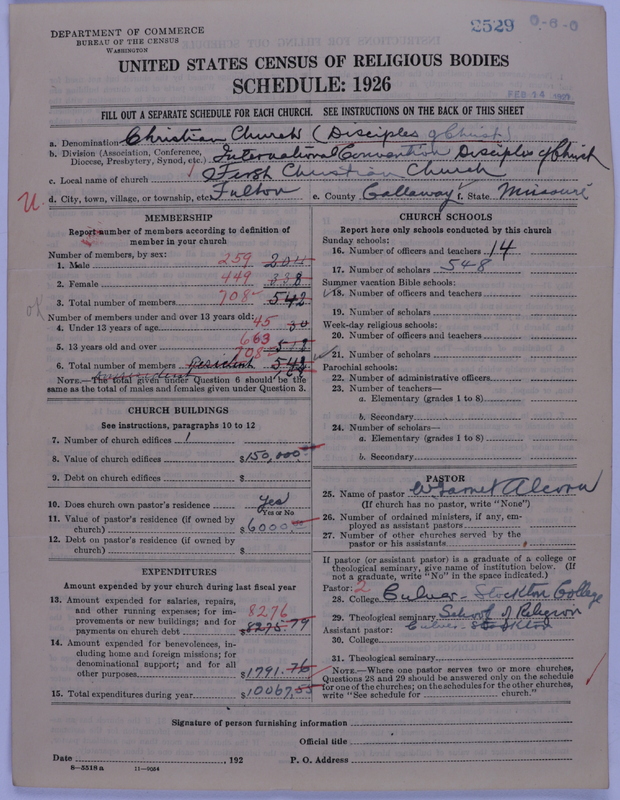 DEPARTMENT OF COMMERCE
BUREAU OF THE CENSUS
WASHINGTON
2529 0-6-0
UNITED STATES CENSUS OF RELIGIOUS BODIES
SCHEDULE: 1926
FEB 14 1927
FILL OUT A SEPARATE SCHEDULE FOR EACH CHURCH. SEE INSTRUCTIONS ON THE BACK OF THIS SHEET
a. Denomination Christian Church (Disciples of Christ)
b. Division (Association, Conference, Diocese, Presbytery, Synod, etc.) International Convention Disciples of Christ
c. Local name of church First Christian Church
U. d. City, town, village, or township, etc. Fulton e. County Callaway f. State Missouri
MEMBERSHIP
Report number of members according to definition of
member in your church
Number of members, by sex:
1. Male 259 204
2. Female 449 338
3. Total number of members 708 542
Number of members under and over 13 years old:
4. Under 13 years of age 45 30
5. 13 years old and over 663 518
6. Total number of members resident 708 548
NOTE.—The total given under Question 6 should be the
same as the total of males and females given under Question 3.
CHURCH BUILDINGS
See instructions, paragraphs 10 to 12
7. Number of church edifices 1
8. Value of church edifices $150,000
9. Debt on church edifices $
10. Does church own pastor's residence Yes
Yes or No
11. Value of pastor's residence (if owned by
church) $6000
12. Debt on pastor's residence (if owned by
church) $
EXPENDITURES
Amount expended by your church during last fiscal year
13. Amount expended for salaries, repairs,
and other running expenses; for im-
provements or new buildings; and for 8276
payments on church debt $8275.79
14. Amount expended for benevolences, in-
cluding home and foreign missions; for
denominational support; and for all
other purposes $1791.76
15. Total expenditures during year $10067.55
CHURCH SCHOOLS
Report here only schools conducted by this church
Sunday schools:
16. Number of officers and teachers 14
17. Number of scholars 548
Summer vacation Bible schools:
18. Number of officers and teachers
19. Number of scholars
Week-day religious schools:
20. Number of officers and teachers
21. Number of scholars
Parochial schools:
22. Number of administrative officers
23. Number of teachers—
a. Elementary (grades 1 to 8)
b. Secondary
24. Number of scholars—
a. Elementary (grades 1 to 8)
b. Secondary
PASTOR
25. Name of pastor W Garnet Alcorn
(If church has no pastor, write "None")
26. Number of ordained ministers, if any, em-
ployed as assistant pastors
27. Number of other churches served by the
pastor or his assistants
If pastor (or assistant pastor) is a graduate of a college or
theological seminary, give name of institution below. (If
not a graduate, write "No" in the space indicated.)
Pastor: 2
28. College Culver-Stockton College
29. Theological seminary School of Religion
Assistant pastor: Culver-Stockton
30. College
31. Theological seminary
NOTE.—Where one pastor serves two or more churches,
Questions 28 and 29 should be answered only on the schedule
for one of the churches; on the schedules for the other churches,
write "See schedule for church."
Signature of person furnishing information
Official title
Date , 192 P. O. Address
8—5518a 11—9054